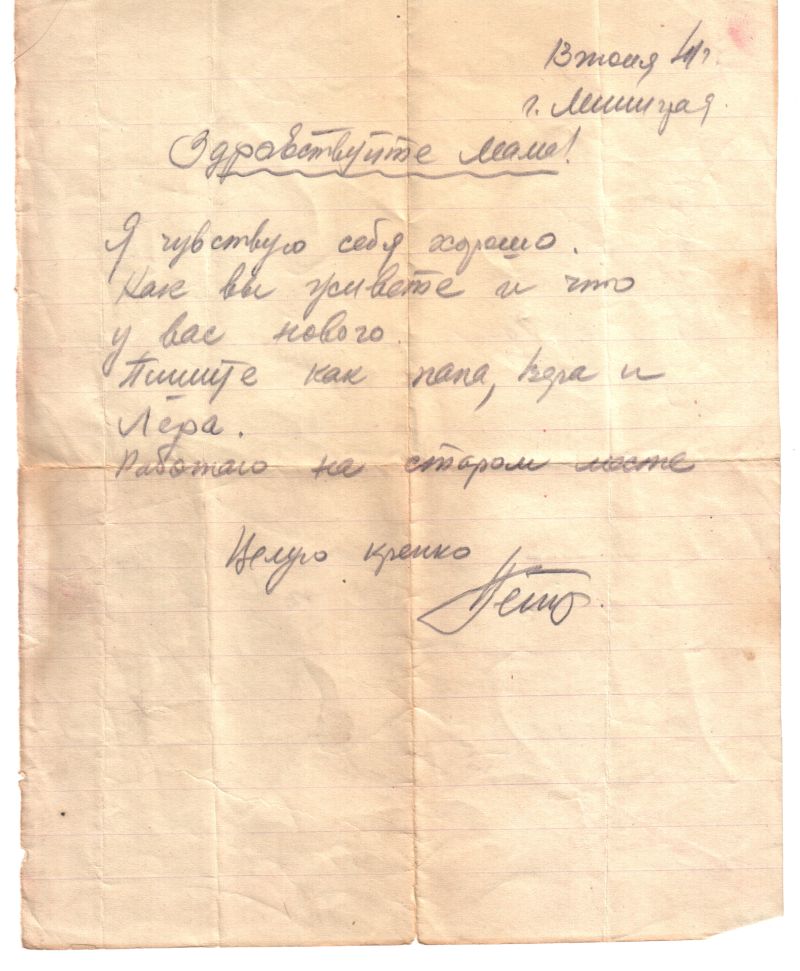 13 июля 41г.
г.
Здравствуйте Мама!
Я чувствую себя хорошо.
Как вы живете и что
у вас нового.
Пишите как папа, Вера и
Лёра.
Работаю на старом месте
Целую крепко